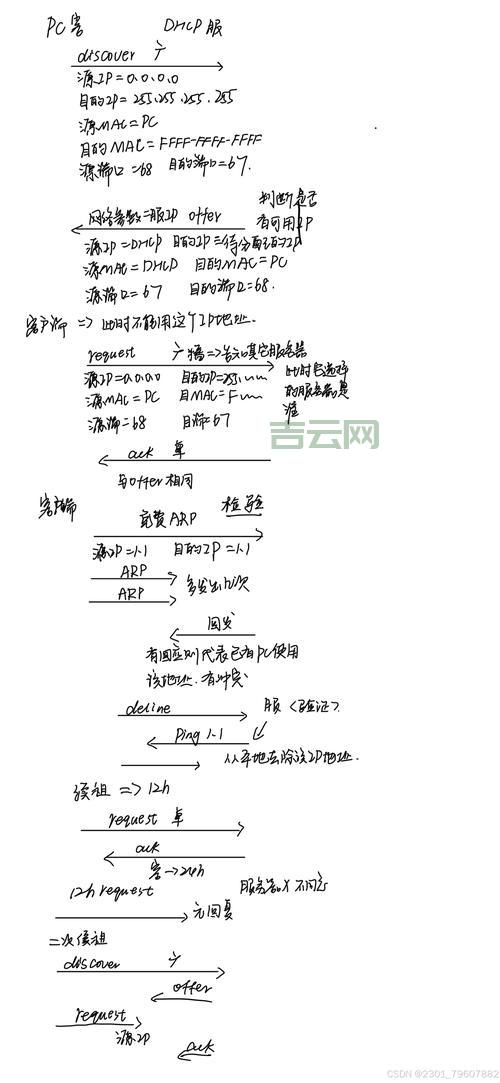 PC客 DHCP服
discover 广
源IP=0.0.0.0
目的IP=255.255.255.255
源MAC=PC
目的MAC=FFFF-FFFF-FFFF
源端口=68 目的端口=67.
判断是否
网络参数=服IP offer 有可用IP
源IP=DHCP 目的IP=待分配的IP
源MAC=DHCP 目的MAC=PC
源端口=67 目的端口=68.
客户端 => 此时不能用这个IP地址.
request 广播=>告知其它服务器
源IP=0.0.0.0 目的IP=255. 此时它选择
源MAC=PC 目MAC=F 的服务器是
源端=68 目端=67 谁
吉云网
ack 单
与offer相同
客户端 免费ARP 检验
源IP=1.1 目的IP=1.1
ARP
ARP 多发出几次
回发
有回应则代表已有PC使用
该地址.有冲突
deline 服<验证>.
Ping 1.1
从本地去除该IP地址.
续租 => 12h
request 单
ack
客->24h
12h request 服务器 X 不同意
无回复
二次续租
discover 广
offer
request
源IP
ack
CSDN @2301_79607882